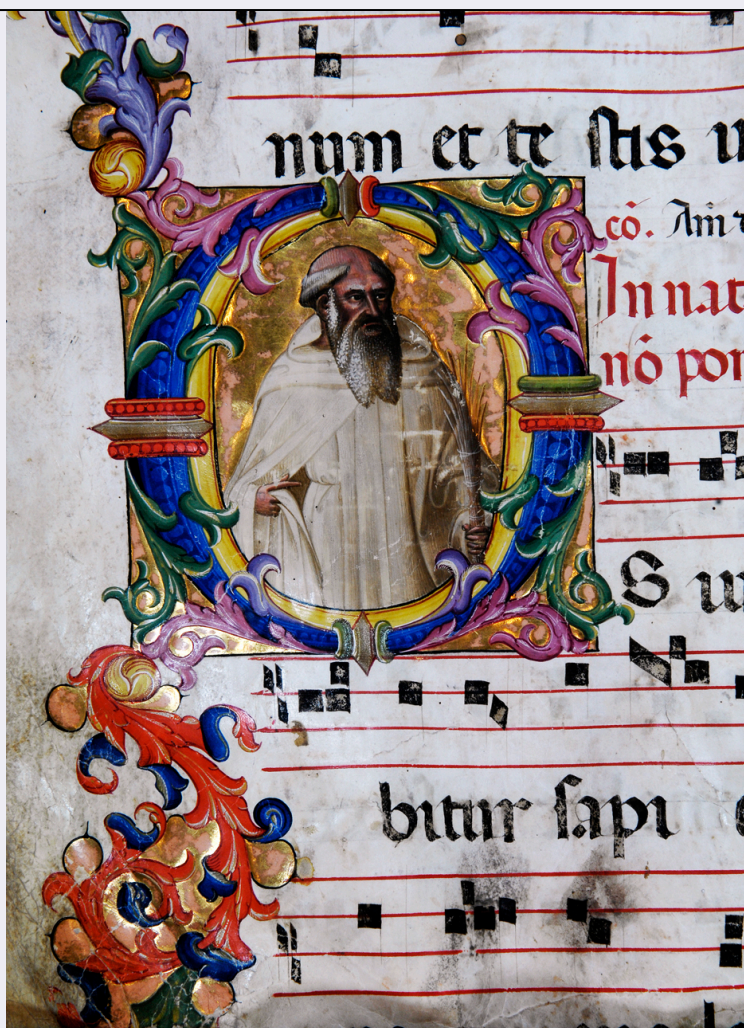 num et te stis
cō. Am
In nat
nō pon
O S
bitur sapi